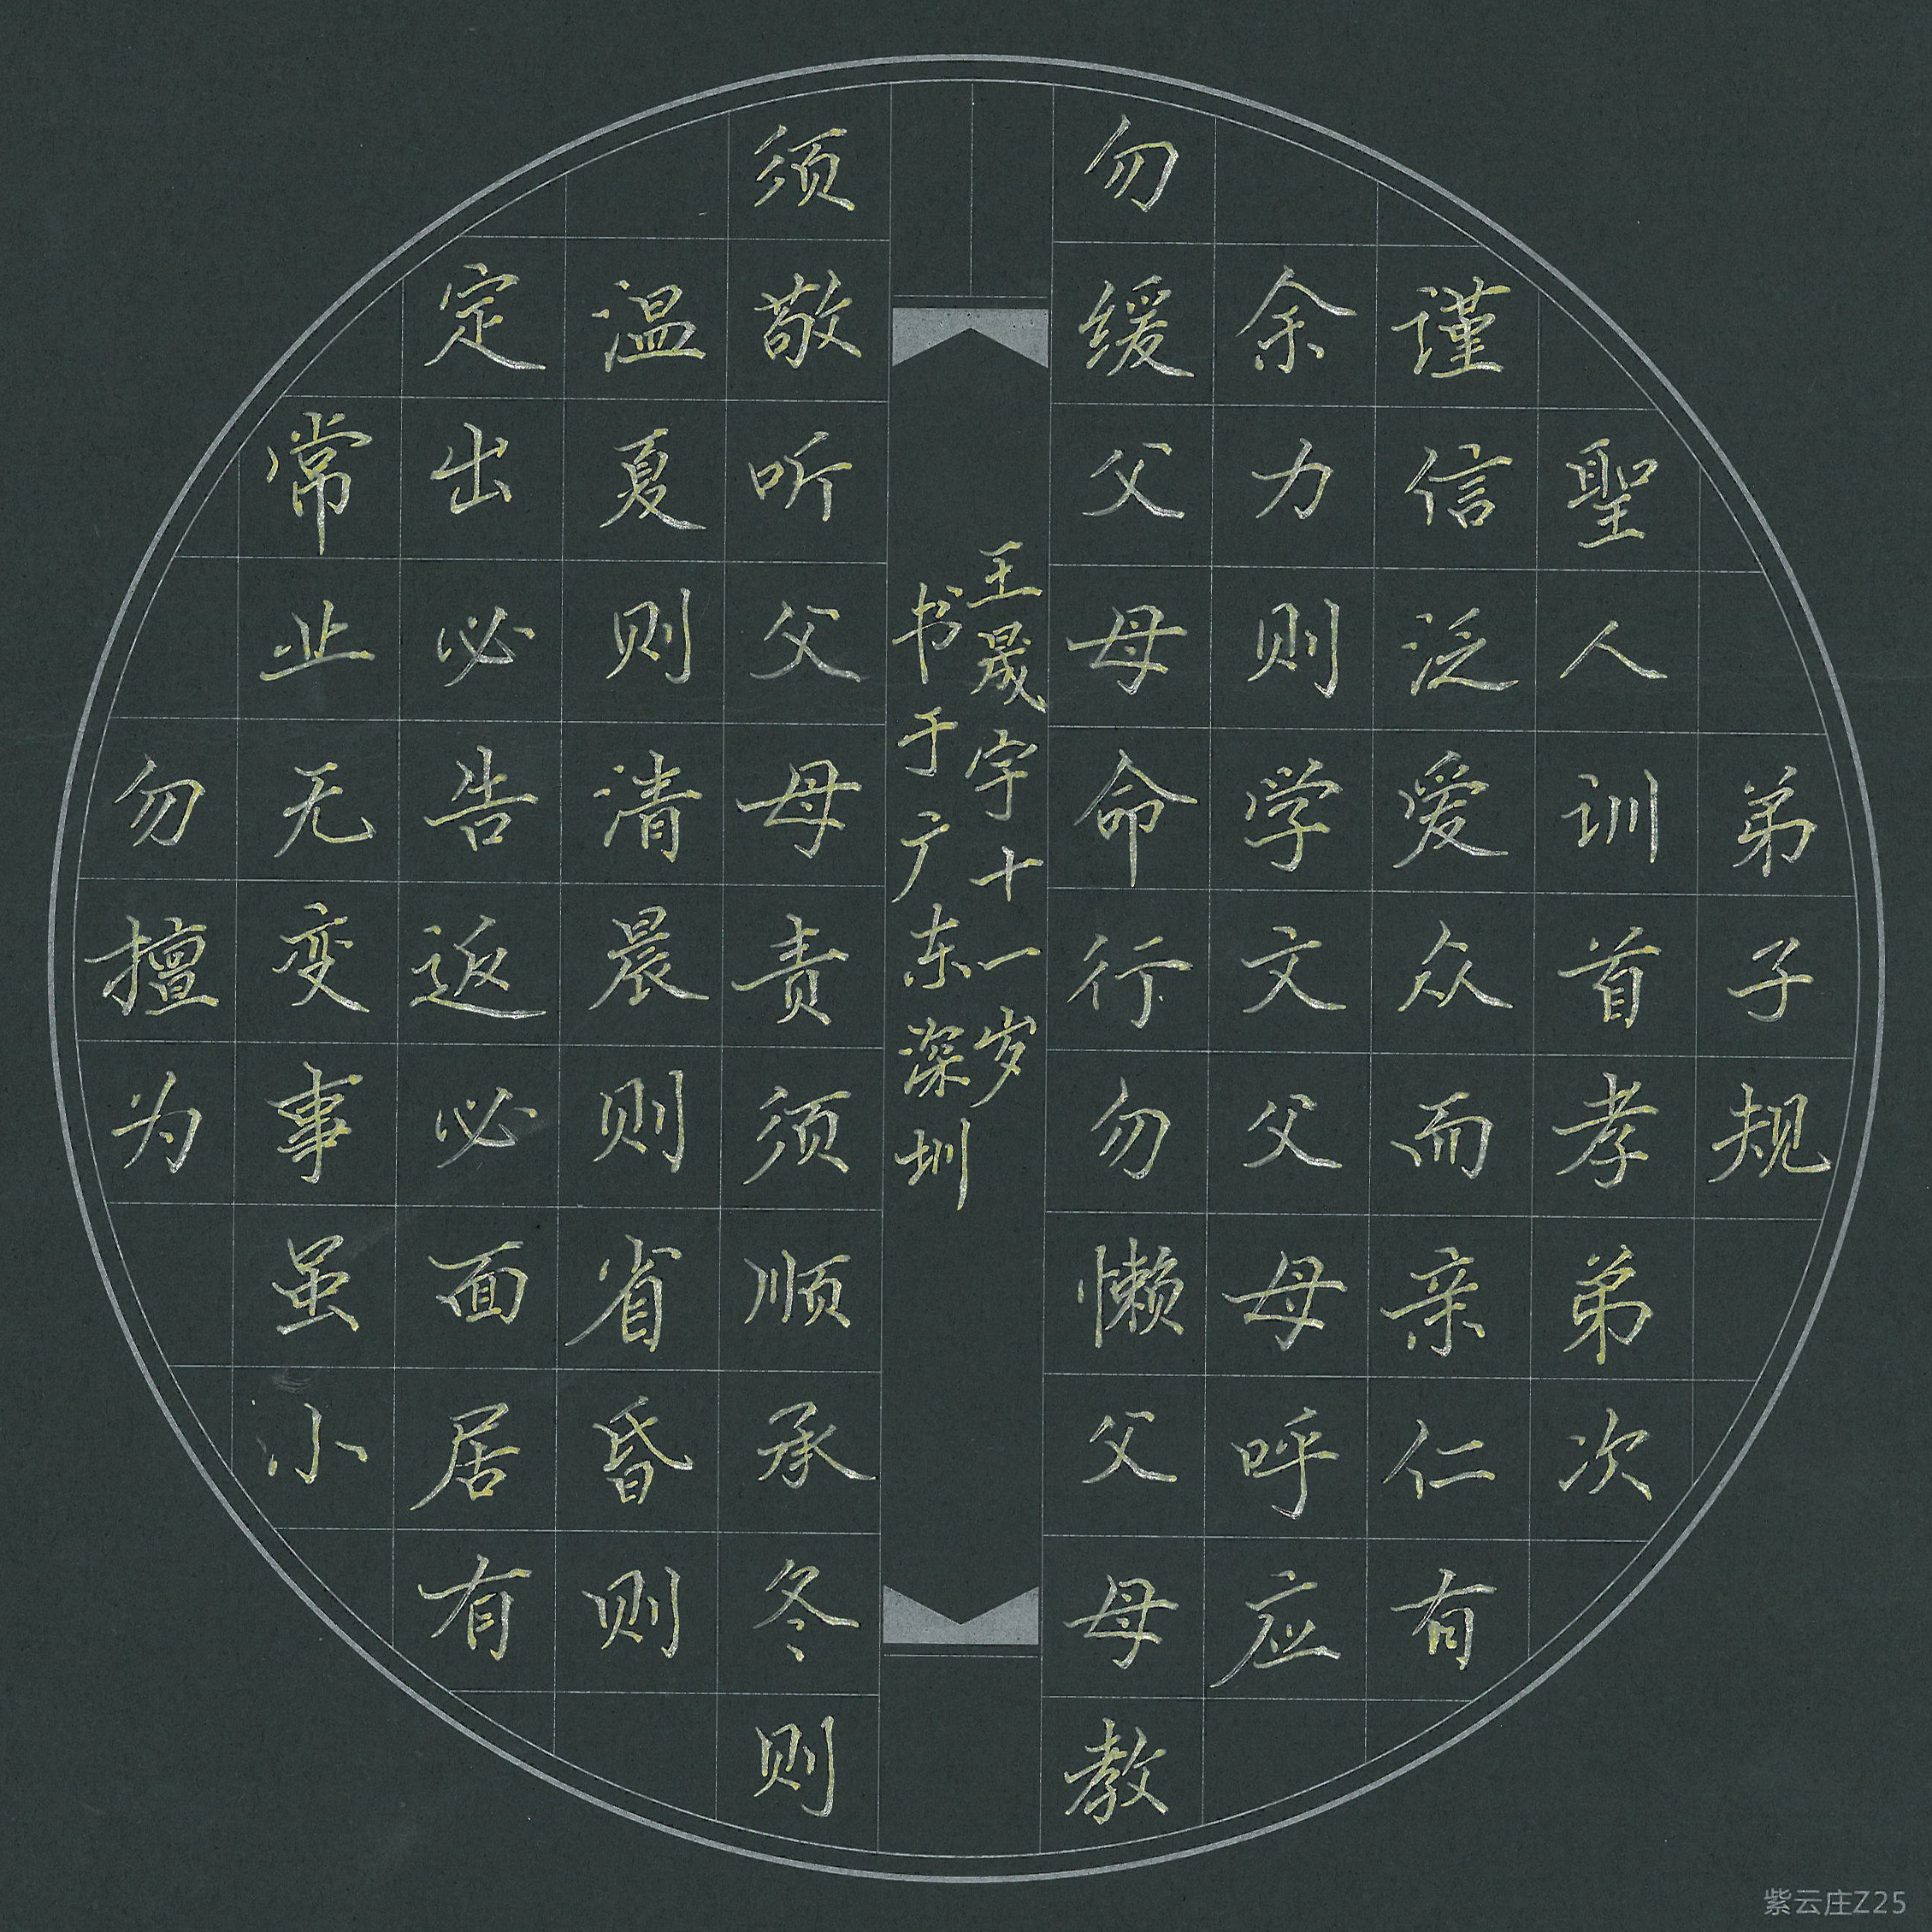 弟子规
聖人训首孝弟次
谨信泛爱众而亲仁有
余力则学文父母呼应
勿缓父母命行勿懒父母教
王晟宇十一岁
书于广东深圳
须敬听父母责须顺承冬则
温夏则清晨则省昏则
定出必告返必面居有
常业无变事虽小
勿擅为
紫云庄Z25